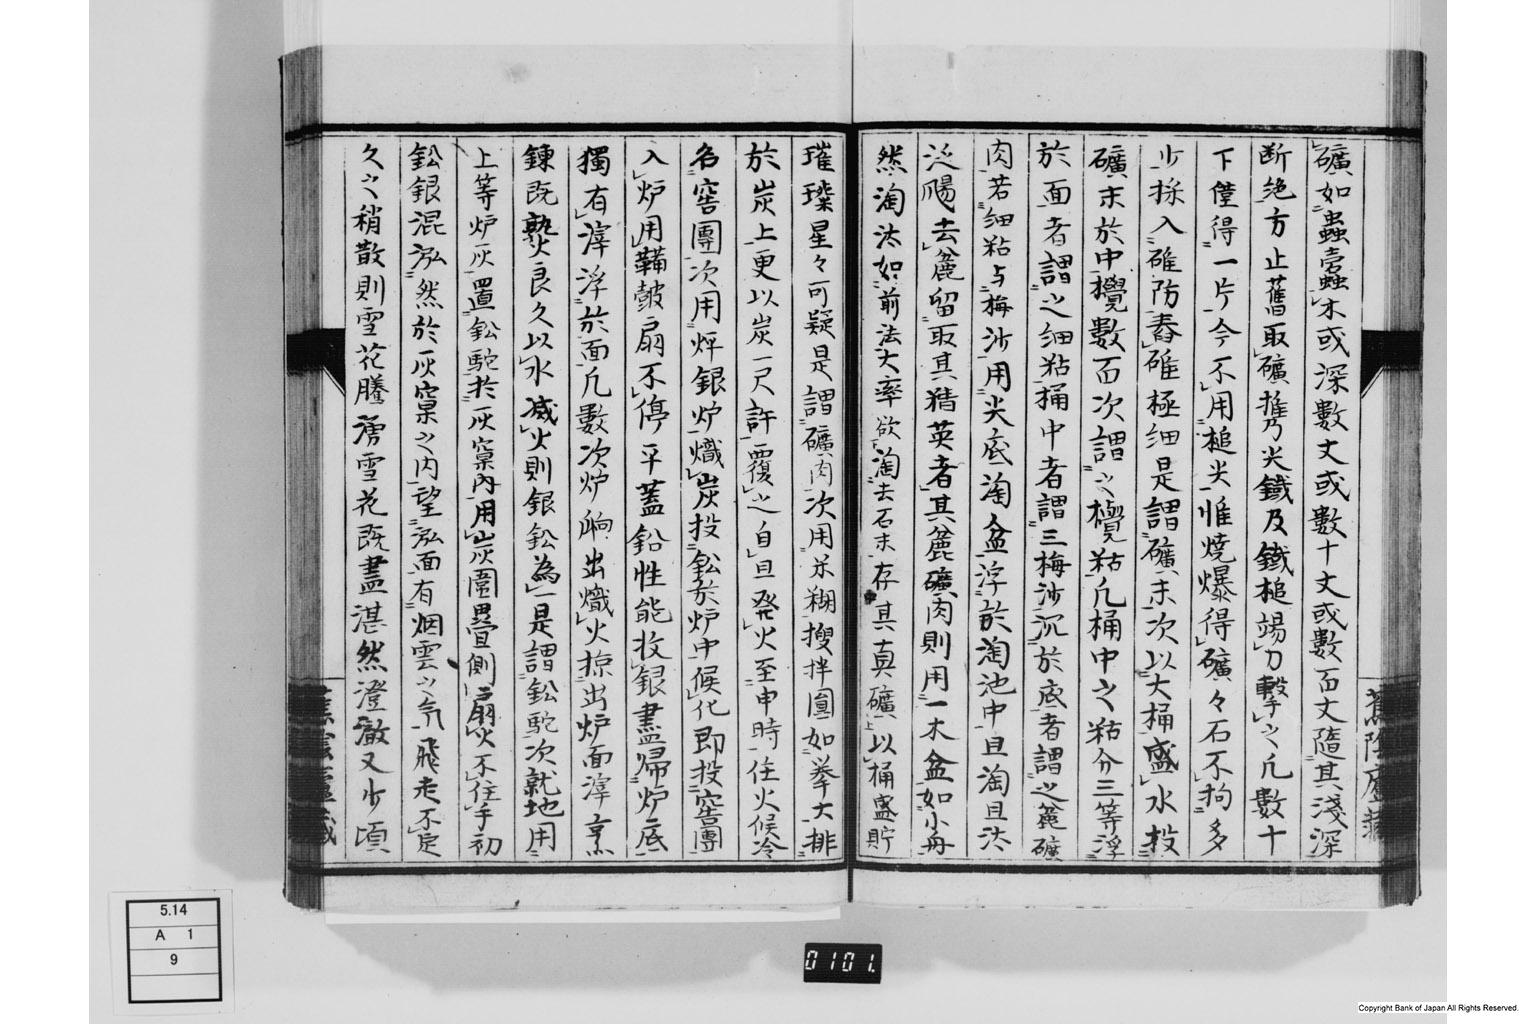 礦如蟲蠹木或深數丈或數十丈或數百丈隨其淺深
断絶方止舊取礦携尖鐵及鐵槌竭力擊之凡數十
下僅得一片今不用槌尖惟燒爆得礦々石不拘多
少採入碓防舂碓極細是謂礦末次以大桶盛水投
礦末於中攪數百次謂之攪粘凡桶中之粘分三等浮
於面者謂之細粘桶中者謂三梅沙沉於底者謂之麄礦
肉若細粘与梅沙用尖底淘盆浮於淘池中且淘且汰
泛颺去麄留取其精英者其麄礦肉則用一木盆如小舟
然淘汰如前法大率欲淘去石末存其真礦以桶盛貯
璀璨星々可疑是謂礦肉次用米糊搜拌圓如拳大排
於炭上更以炭一尺許覆之自旦発火至申時住火候冷
名窖團次用烰銀炉熾炭投鈆於炉中候化即投窖團
入炉用鞴皷扇不停平蓋鉛性能收銀盡歸炉底
獨有滓浮於面凡數次炉㕿出熾火掠出炉面滓烹
錬既熟火良久以水减火則銀鈆為一是謂鈆駝次就地用
上等炉灰置鈆駝於灰窠内用炭圍畳側扇火不住手初
鈆銀混泓然於灰窠之内望泓面有烟雲之気飛走不定
久之稍散則雪花騰湧雪花既盡湛然澄澈又少頃
5.14
A 1
9
0101.
Copyright Bank of Japan All Rights Reserved.